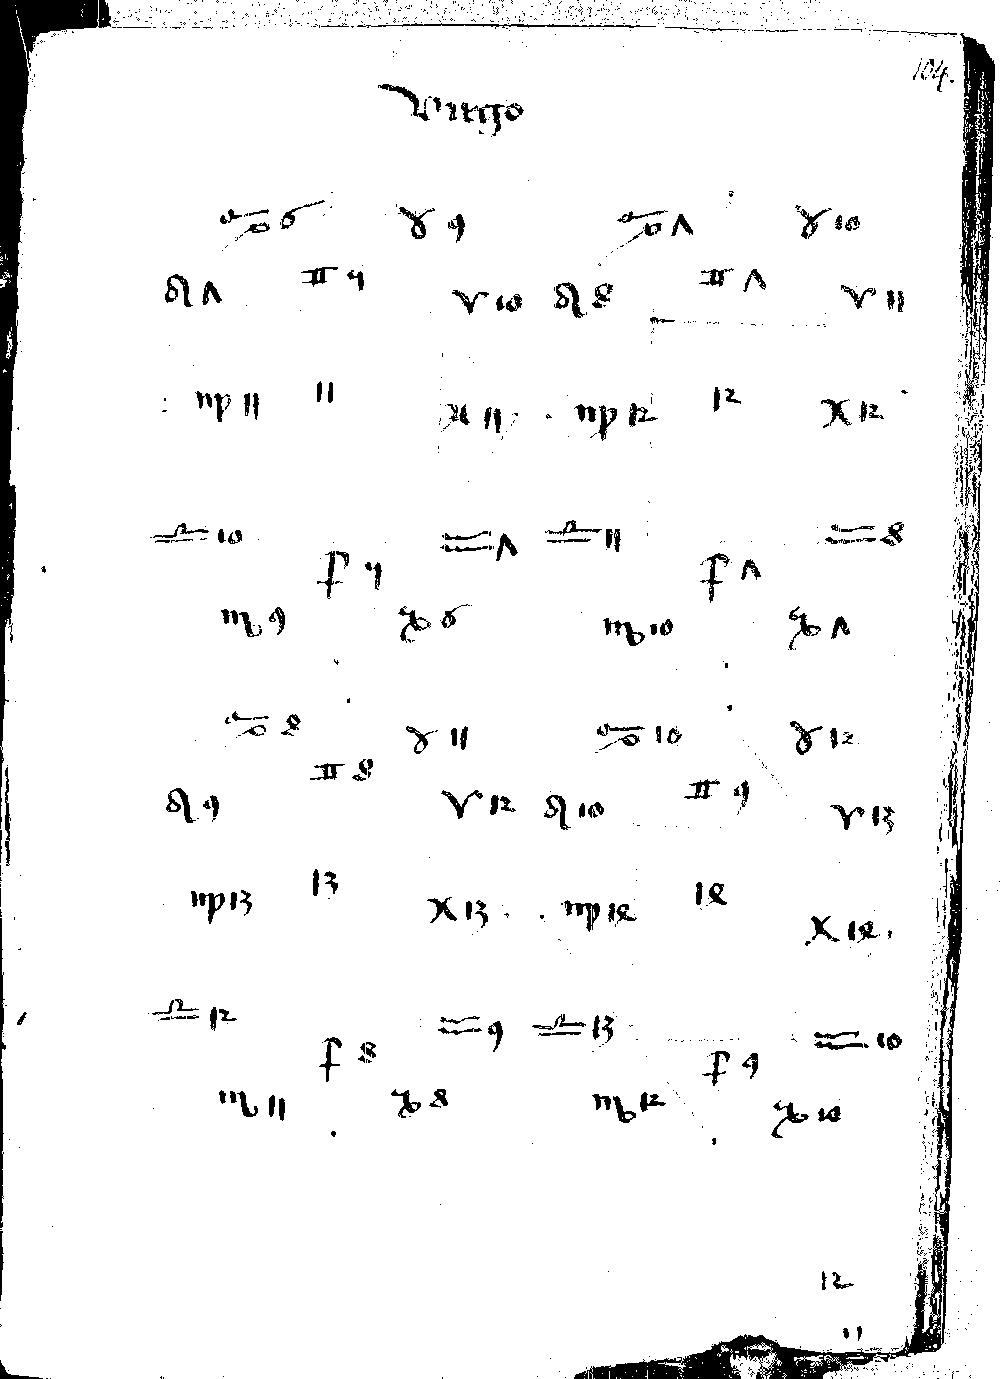 104.
Virgo
♋ 6 ♉ 9 ♋ Λ ♉ 10
♌ Λ ♊ 9 ♈ 10 ♌ 8 ♊ Λ ♈ 11
♍ 11 11 ♓ 11 ♍ 12 12 ♓ 12
♎ 10 ♒ Λ ♎ 11 ♒ 8
♐ 9 ♐ Λ
♏ 9 ♑ 6 ♏ 10 ♑ Λ
♋ 8 ♉ 11 ♋ 10 ♉ 12
♊ 8 ♊ 9
♌ 9 ♈ 12 ♌ 10 ♈ 13
♍ 13 13 ♓ 13 ♍ 14 14 ♓ 14
♎ 12 ♒ 9 ♎ 13 ♒ 10
♐ 8 ♐ 9
♏ 11 ♑ 8 ♏ 12 ♑ 10
12
11